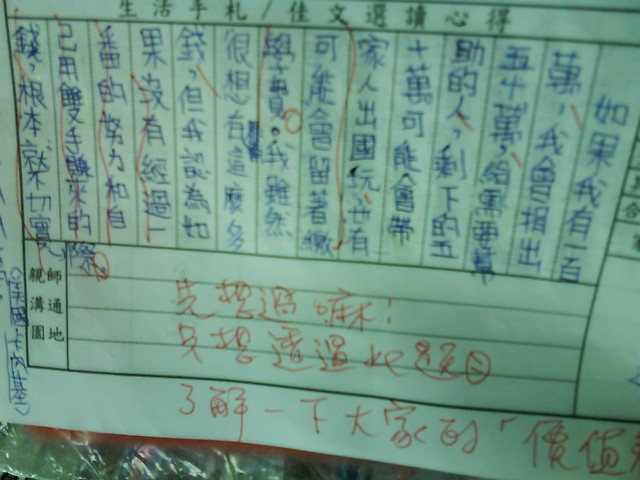 生活手札/佳文選讀心得
如果我有一百
萬，我會捐出
五十萬，給需要幫
助的人，剩下的五
十萬可能會帶
家人出國玩，也有
可能會留著繳
學費。我雖然
很想有這麼多
錢，但我認為如
果沒有經過一
番的努力和自
己用雙手賺來的
錢，根本就不切實
際。
親師
溝通
園地
先想過嘛！
只想透過此題目
了解一下大家的「價值